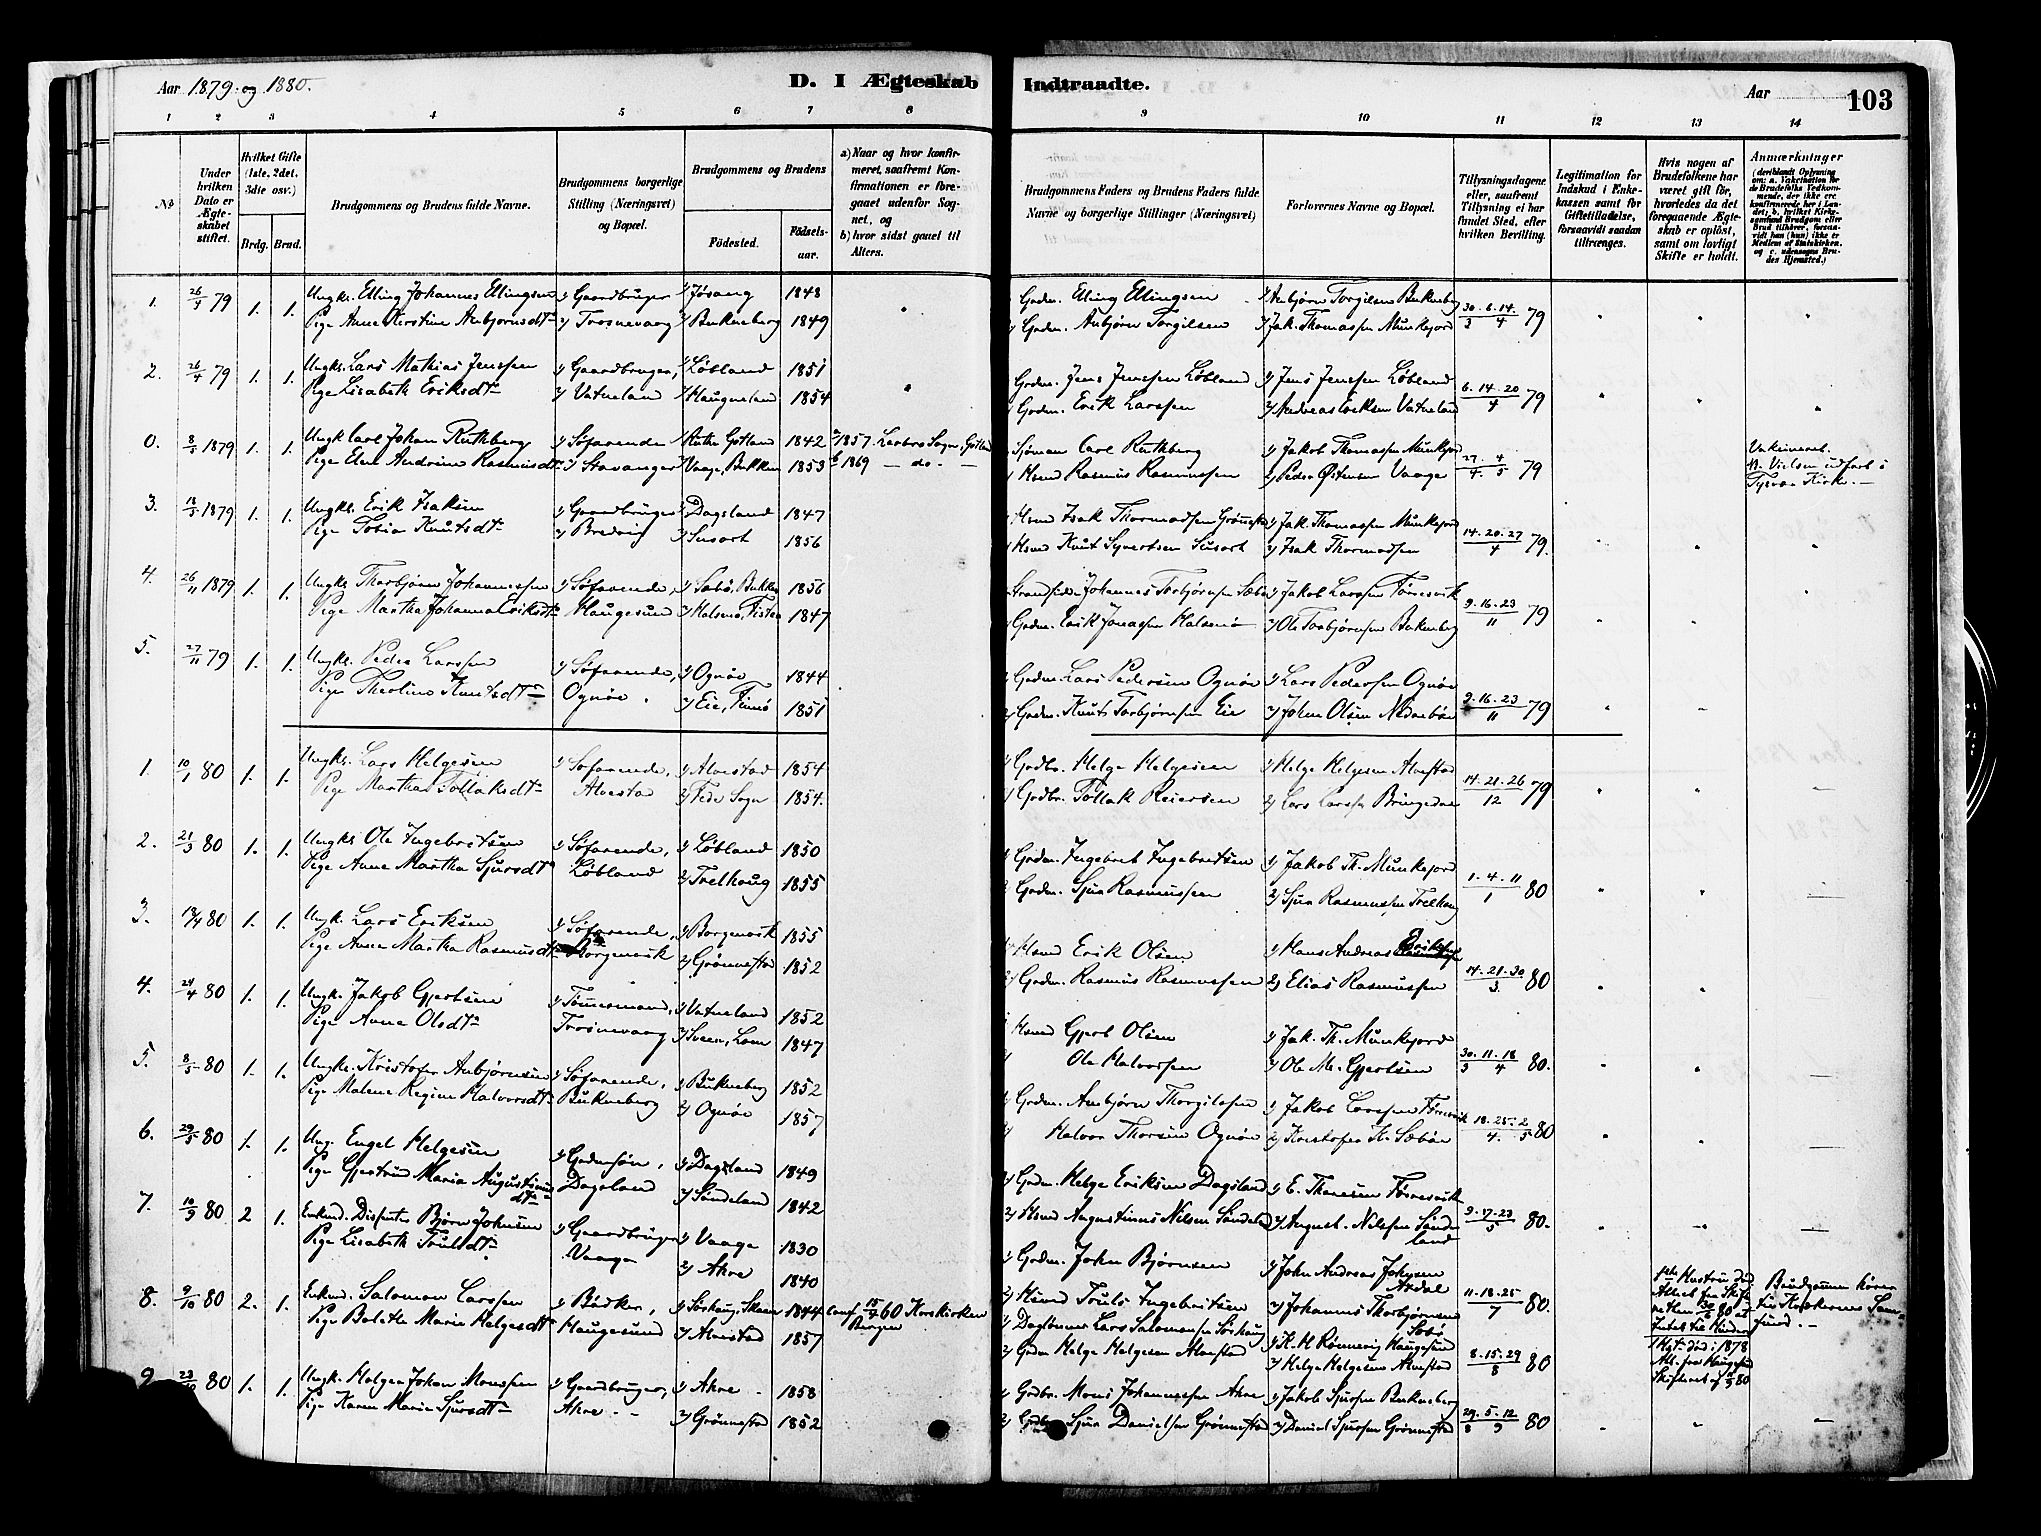 Aar 1879 og 1880.
D. I Ægteskab
Indtraadte.
Aar
103
1 2 3 4 5 6 7 8
9 10 11 12 13 14
No
Under hvilken Dato er Ægteskabet stiftet.
Hvilket Gifte (1ste, 2det, 3die osv.)
Brdg. Brud.
Brudgommens og Brudens fulde Navne.
Brudgommens borgerlige Stilling (Næringsvei) og Bopæl.
Brudgommens og Brudens
Fødested.
Fødselsaar.
a) Naar og hvor konfirmeret, saafremt Konfirmationen er foregaaet udenfor Sognet, og
b) hvor sidst gaaet til Alters.
Brudgommens Faders og Brudens Faders fulde Navne og borgerlige Stillinger (Næringsvei)
Forlovernes Navne og Bopæl.
Tillysningsdagene eller, saafremt Tillysning ei har fundet Sted, efter hvilken Bevilling.
Legitimation for Indskud i Enkekassen samt for Giftetilladelse, forsaavidt saadan tiltrænges.
Hvis nogen af Brudefolkene har været gift før, hvorledes da det foregaaende Ægteskab er opløst, samt om lovligt Skifte er holdt.
Anmærkninger
1. 26/4 79 1. 1. Ungk. Elling Johannes Ellingsen 1) Gaardbruger 1) Jøsang 1848 Grdm. Elling Ellingsen 1) Anbjørn Torgilsen Bukneberg 30. 6. 14. 79
Pige Anne Kirstine Anbjørnsdtr 2) Trosnevaag 2) Bukneberg 1849 2) Grdm. Anbjørn Torgilsen 2) Jak. Thomassen Munkejord 3 4
2. 26/4 79 1. 1. Ungk. Lars Mathias Jenssen 1) Gaardbruger, 1) Løbland 1851 Grdm. Jens Jenssen Løbland 1) Jens Jenssen Løbland 6. 14. 20 79
Pige Lisabeth Eriksdtr 2) Vatneland 2) Haugneland 1854 Grdm. Erik Larssen 2) Andreas Eriksen Vatneland 4
0. 8/5 1879 1. 1. Ungk Carl Johan Ruthberg 1) Søfarende 1) Ruthe Gotland 1842 a) 1857. Lerbro Sogn, Gotland Sjøman Carl Ruthberg 1) Jakob Thomassen Munkejord 27. 4 79 Vakcineret.
Pige Elen Andrine Rasmusdtr 2) Stavanger 2) Vaage, Bukken 1853 b) 1869 — do. — Hsmd Rasmus Rasmussen 2) Peder Østensen Vaage 4. 5 N. Vielsen udført i Tysvær Kirke. —
3. 18/5 1879 1. 1. Ungk. Erik Isaksen 1) Gaardbruger 1) Dagsland 1847 Hsmd Isak Thormodsen Grønnestad 1) Jak. Thomassen Munkejord 14. 20. 27 79.
Pige Tobia Knutsdtr 2) Bredvig 2) Susort 1856 Hsmd Knut Syvertsen Susort 2) Isak Thormodsen 4
4. 26/11 1879 1. 1. Ungk Thorbjørn Johannessen 1) Søfarende, 1) Søbø, Bukken 1856 Strandsidder Johannes Torbjørnsen Sæbø 1) Jakob Larssen Førresvik 9. 16. 23 79
Pige Martha Johanna Eriksdtr Haugesund 2) Halsnø, Fister 1847 Grdm. Erik Jonassen Halsnø 2) Ole Torbjørnsen Bukneberg 11
5. 27/11 79 1. 1. Ungk. Peder Larssen 1) Søfarende, 1) Ognøe 1844 Grdm. Lars Pedersen Ognøe 1) Lars Pedersen Ognøe 9. 16. 23 79
Pige Theoline Knutsdtr Ognøe. 2) Eie, Finnø 1851 2) Grdm. Knut Torbjørnsen Eie 2) John Olsen Nedrebøe 11
1. 10/1 80 1. 1. Ungk. Lars Helgesen 1) Søfarende, 1) Alvestad 1854 Grdbr. Helge Helgesen 1) Helge Helgesen Alvestad 14. 21. 26 79
Pige Martha Tollaksdtr Alvestad 2) Fede Sogn 1854. Grdbr. Tollak Reiersen 2) Lars Larsen Bringedal 12
2. 21/3 80 1. 1. Ungk Ole Ingebretsen 1) Søfarende, 1) Løbland 1850 Grdm. Ingebret Ingebretsen 1) Jakob Th. Munkejord 1. 4. 11 80
Pige Anne Martha Sjursdtr Løbland 2) Trelhoug 1855 Grdm. Sjur Rasmussen 2) Sjur Rasmussen Trelhoug 1
3. 18/4 80 1. 1. Ungk. Lars Eriksen 1) Søfarende, 1) Borgenvik 1855 Hsmd Erik Olsen 1) Hans Andreas Eriksen 14. 21. 30 80
Pige Anne Martha Rasmusdtr Borgenvik 2) Grønnestad 1852 2) Grdm. Rasmus Rasmussen 2) Elias Rasmussen 3
4. 24/4 80 1. 1. Ungk. Jakob Gjertsen 1) Tømmermand, 1) Vatneland 1852 Hsmd Gjert Olsen 1) Jak. Th. Munkejord 30. 11. 18 80.
Pige Anne Olsdtr Trosnevaag 2) Sveen, Lom 1847 2) Ole Halvorsen 2) Ole M. Gjertsen 3 4
5. 8/5 80 1. 1. Ungk. Kristofer Anbjørnsen 1) Søfarende, 1) Bukneberg 1852 1) Grdm. Anbjørn Thorgilsen 1) Jakob Larssen Førresvik 18. 25. 2 80
Pige Malene Regine Halvorsdtr Bukneberg 2) Ognøe 1857 2) Halvor Thorsen Ognøe 2) Kristofer K. Sæbøe 4. 5
6. 29/5 80 1. 1. Ung. Engel Helgesen 1) Grdmsøn, 1) Dagsland 1849 1) Grdm. Helge Eriksen Dagsland 1) E. Thoresen Førresvik 9. 17. 23 80.
Pige Gjertrud Maria Augustinusdtr Dagsland 2) Søndeland 1842 2) Hsmd Augustinus Nilsen Søndeland 2) August. Nilssen Søndeland 5
7. 10/9 80 2 1. Enkmd. Bjørn Johnsen 1) Gaardbruger 1) Vaage 1830 1) Grdm. John Bjørnsen 1) John Andreas Johnsen Årdal 11. 18. 25 80.
Pige Lisabeth Trulsdtr. Vaage 2) Akre 1840 2) Hsmd Truls Ingebretsen 2) Johannes Thorbjørnsen Søbø 7
8. 9/10 80 2. 1. Enkmd. Salomon Larssen 1) Bødker, 1) Sørhaug, Skaare 1844 conf. 15/4 60 Korskirken Bergen 1) Daglønner Lars Salomonsen Sørhaug 1) K. H. Rønnevig Haugesund 8. 15. 29 80
Pige Bolette Maria Helgesdtr Haugesund 2) Alvestad 1857 2) Grdm Helge Helgesen Alvestad 2) Helge Helgesen Alvestad 8
9. 80 1. 1. Ungk. Helge Johan Monssen 1) Gaardbruger, 1) Akre 1858 Grdbr. Mons Johannessen Akre 1) Jakob Sjursen Bukneberg 29. 5. 12 80
Pige Karen Maria Sjursdtr Akre 2) Grønnestad 1852 2) Sjur Danielsen Grønnestad 2) Daniel Sjursen Grønnestad 8 9